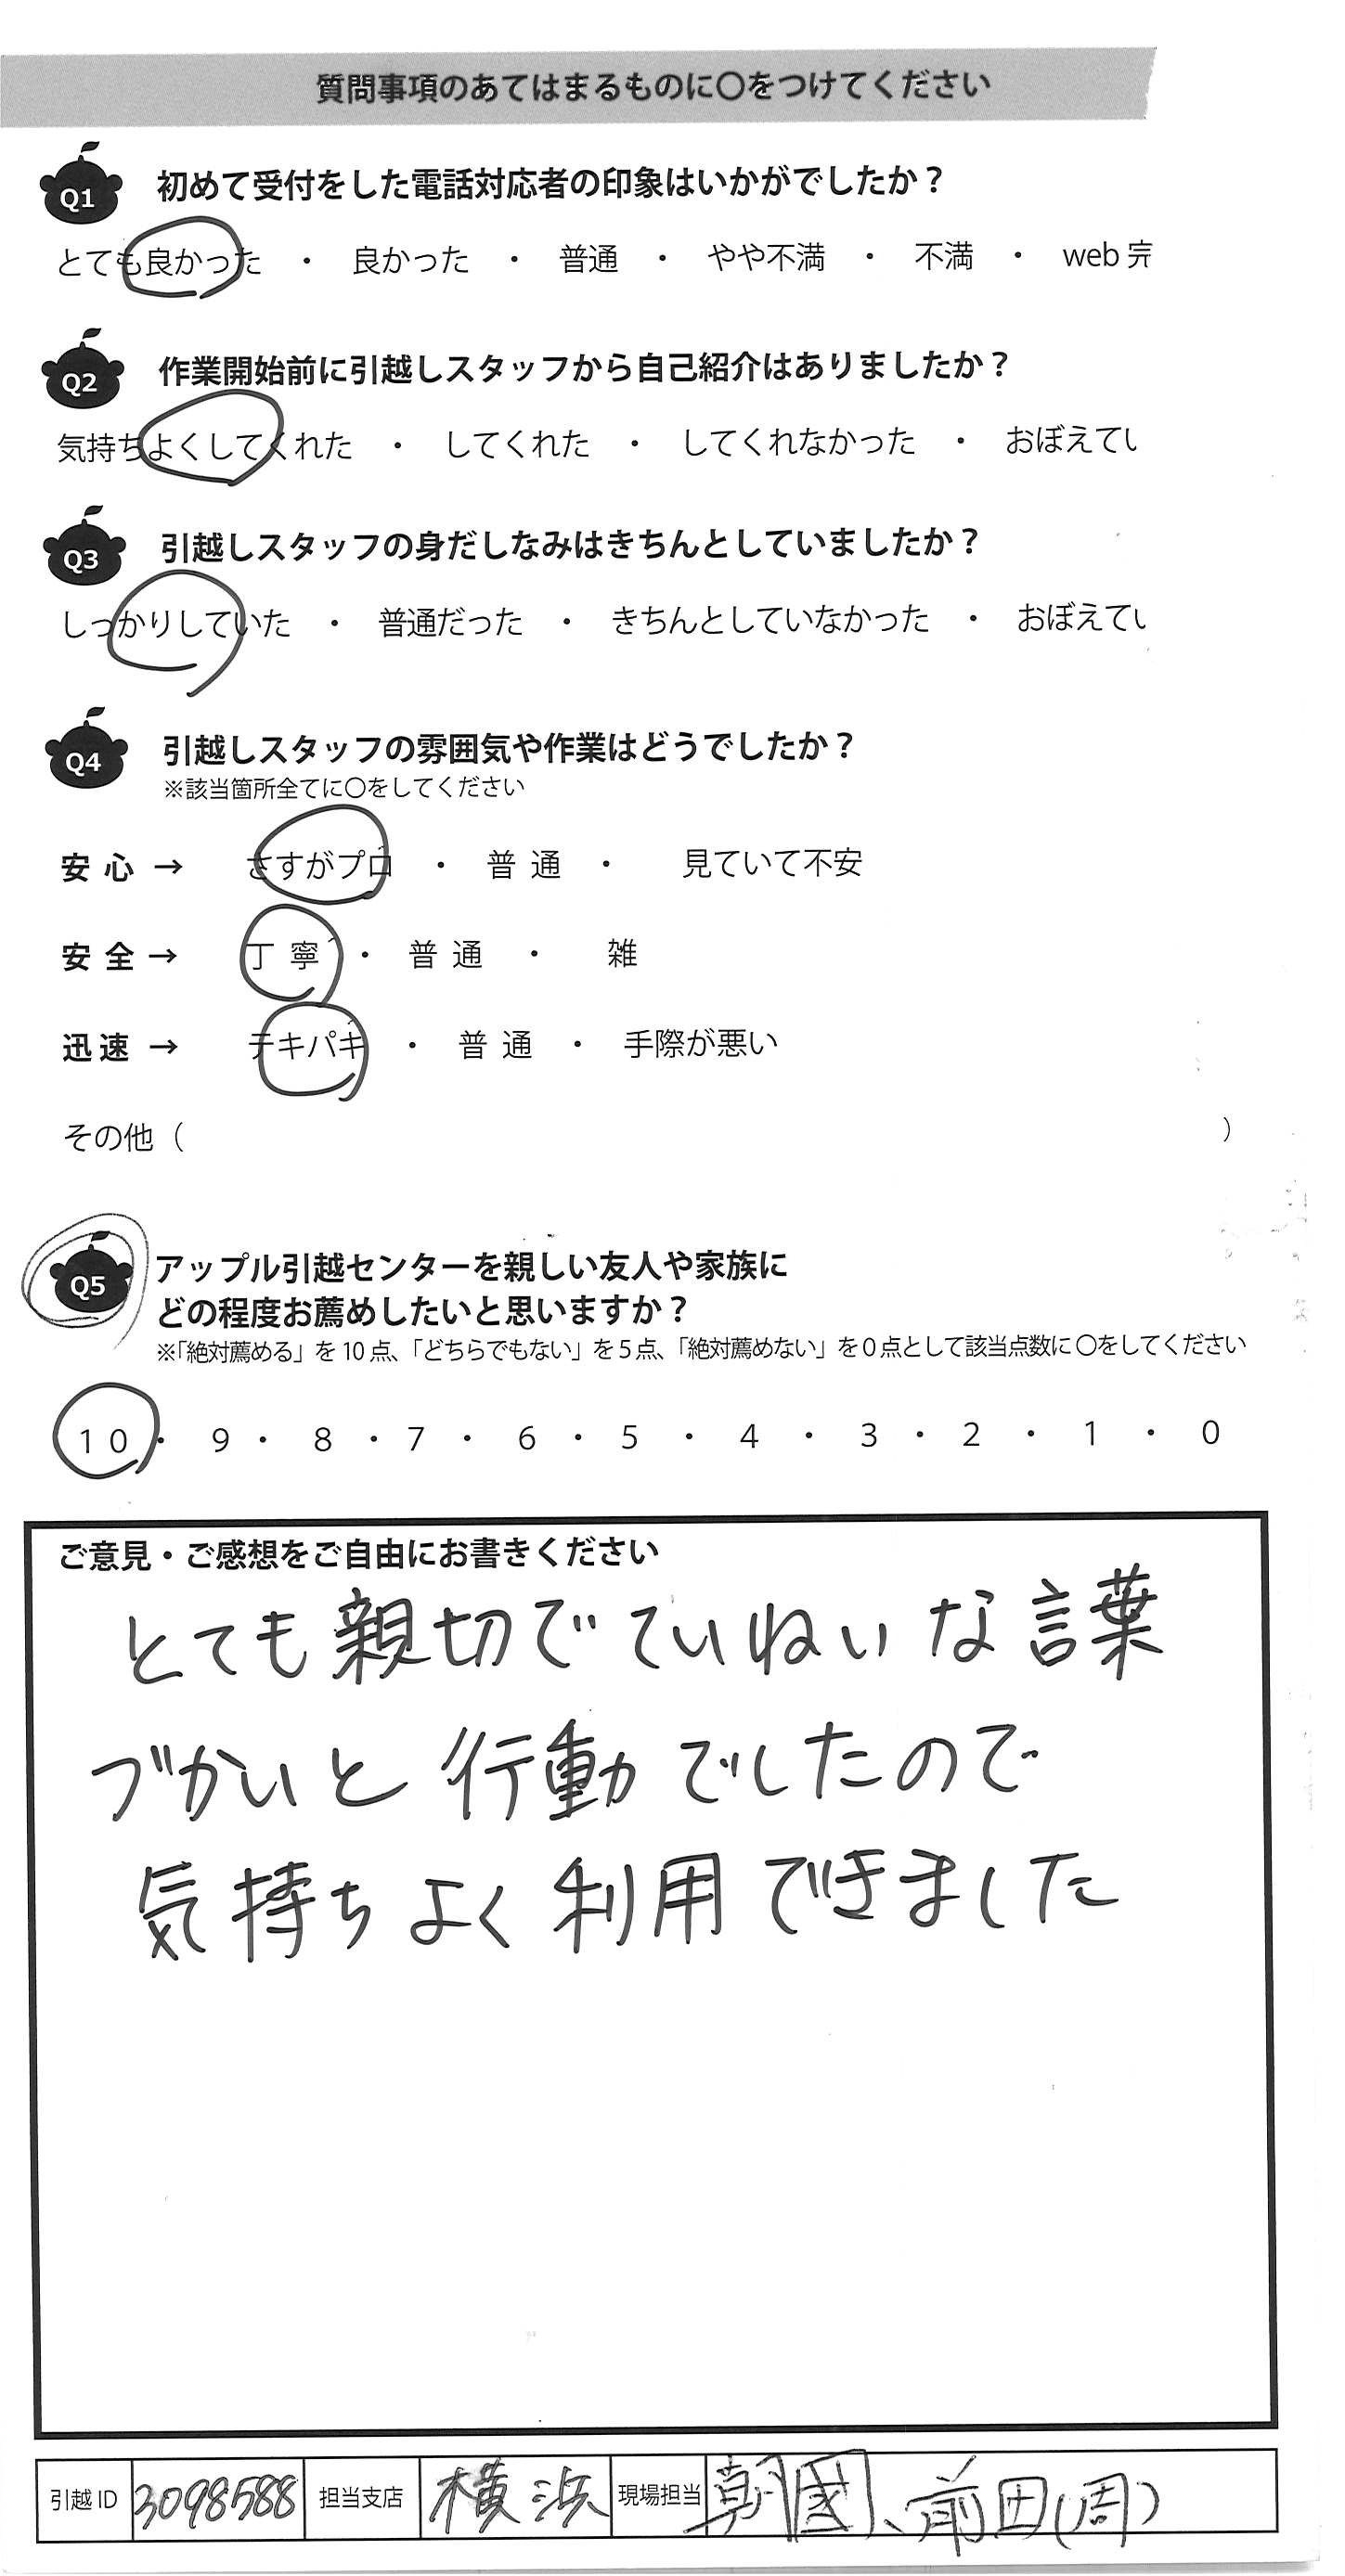 質問事項のあてはまるものに〇をつけてください
Q1 初めて受付をした電話対応者の印象はいかがでしたか？
とても良かった ・ 良かった ・ 普通 ・ やや不満 ・ 不満 ・ web
Q2 作業開始前に引越しスタッフから自己紹介はありましたか？
気持ちよくしてくれた ・ してくれた ・ してくれなかった ・ おぼえてい
Q3 引越しスタッフの身だしなみはきちんとしていましたか？
しっかりしていた ・ 普通だった ・ きちんとしていなかった ・ おぼえてい
Q4 引越しスタッフの雰囲気や作業はどうでしたか？
※該当箇所全てに〇をしてください
安心 → さすがプロ ・ 普通 ・ 見ていて不安
安全 → 丁寧 ・ 普通 ・ 雑
迅速 → テキパキ ・ 普通 ・ 手際が悪い
その他（ ）
Q5 アップル引越センターを親しい友人や家族に
どの程度お薦めしたいと思いますか？
※「絶対薦める」を10点、「どちらでもない」を5点、「絶対薦めない」を0点として該当点数に〇をしてください
10 ・ 9 ・ 8 ・ 7 ・ 6 ・ 5 ・ 4 ・ 3 ・ 2 ・ 1 ・ 0
ご意見・ご感想をご自由にお書きください
とても親切でていねいな言葉
づかいと行動でしたので
気持ちよく利用できました
引越ID 3098588 担当支店 横浜 現場担当 朝國、前田(周)